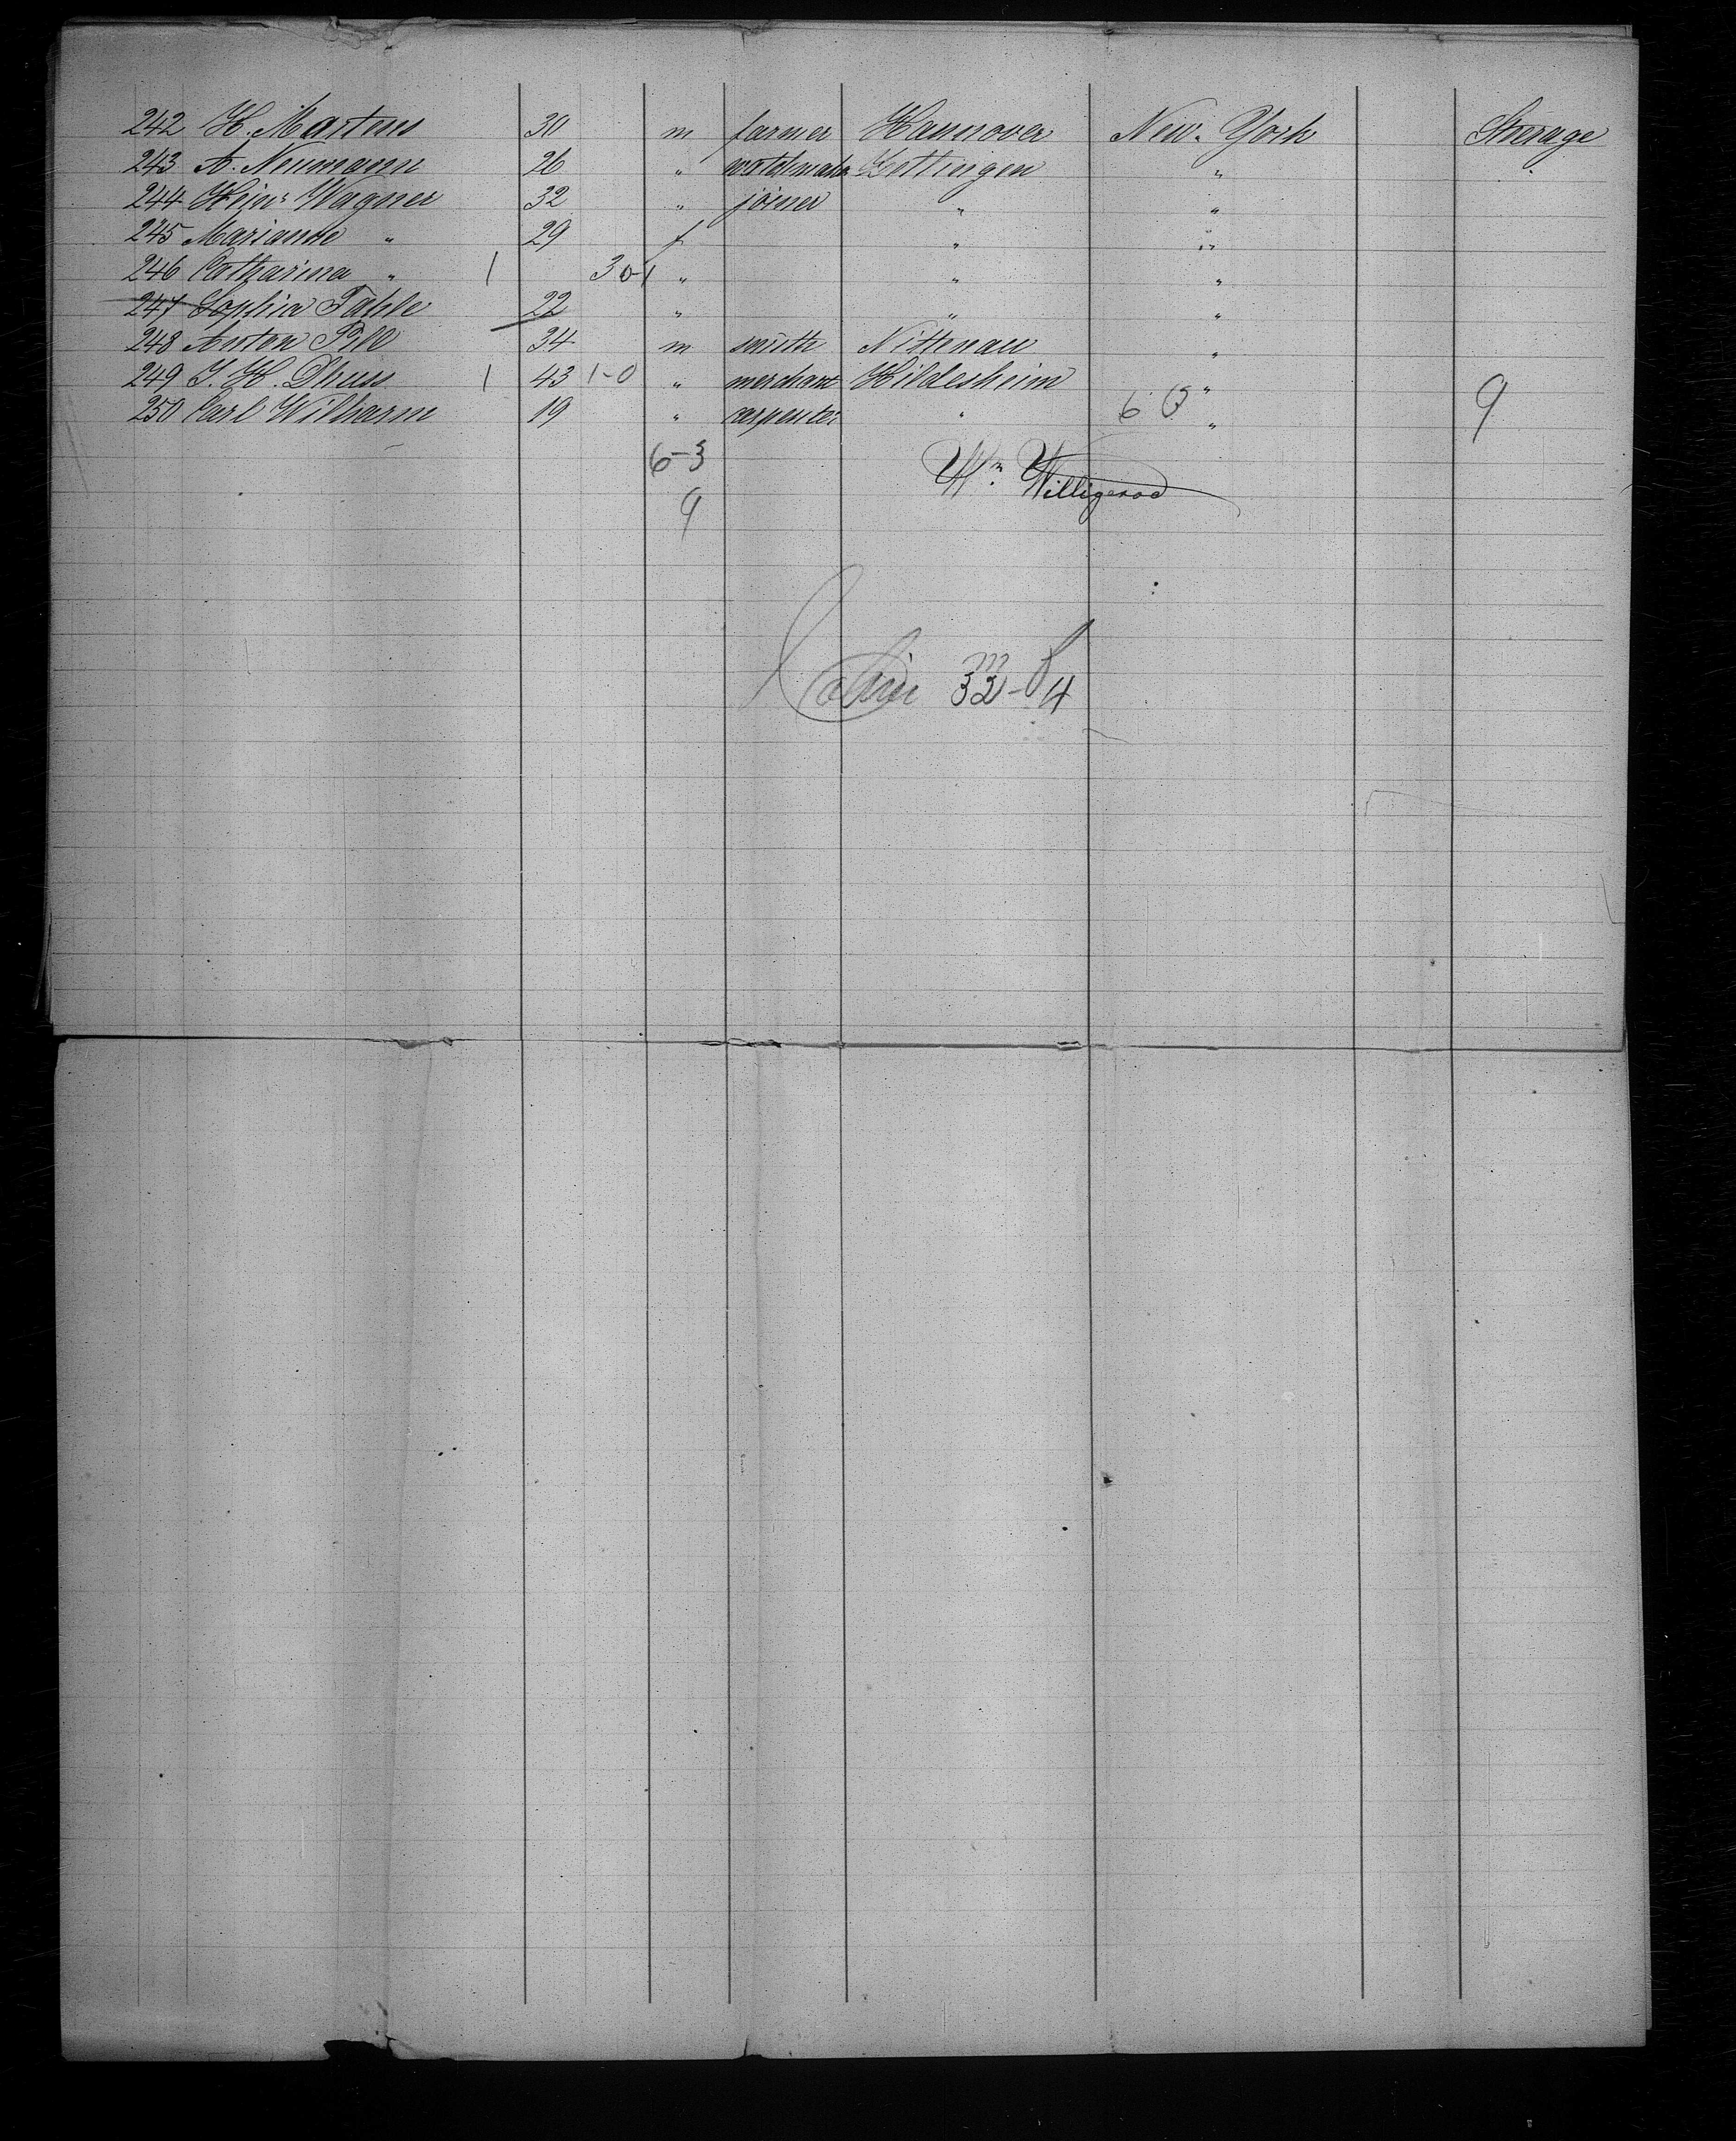 242 H. Martens 30 m farmer Hannover New-York Steerage
243 A. Neumann 26 " watchmaker Zettingen "
244 Heinr Wagner 32 " joiner " "
245 Marianne " 29 f " "
246 Catharina " 1 3 0-1 " " "
247 Sophia Fahle 22 " " "
248 Anton Pill 34 m smith Nittenau "
249 J. H. Dhuss 1 43 1-0 " merchant Hildesheim "
250 Carl Wilharm 19 " carpenter " 6 3 " 9
6-3
9
Wm. Willigerod
Cabin m 32 - f 4